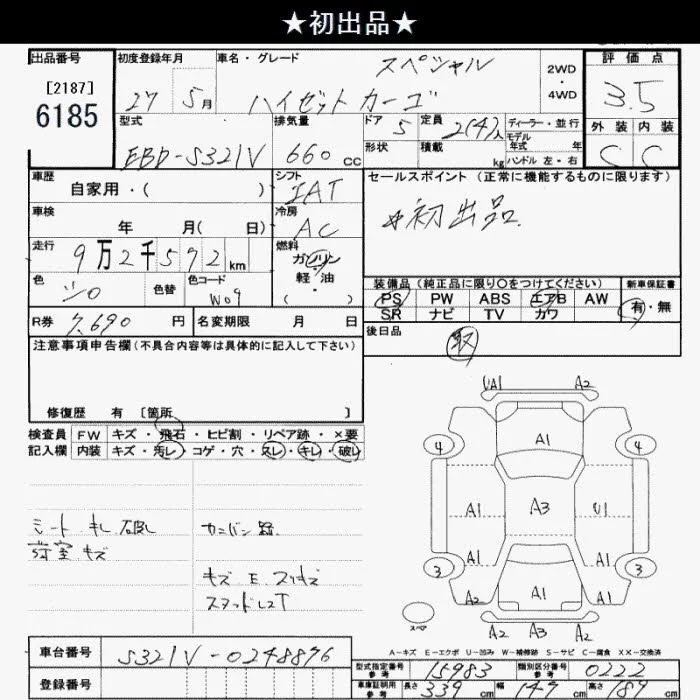 ★初出品★
出品番号
[2187]
6185
初度登録年月
27 5月
車名・グレード
スペシャル
ハイゼットカーゴ
2WD
・
4WD
評価点
3.5
外装 内装
C C
型式
EBD-S321V
排気量
660 cc
ドア 5
定員 2(4)人
形状
積載 kg
ディーラー・並行
モデル
年式 年
ハンドル 左・右
車歴
自家用・( )
シフト
IAT
車検
年 月( 日)
冷房
AC
走行
9万2千572km
燃料
ガソリン
・
軽・油
( )
色
シロ
色替
色コード
W09
R券 7,690 円
名変期限 月 日
セールスポイント (正常に機能するものに限ります)
☆初出品.
装備品 (純正品に限り○をつけてください)
新車保証書
PS PW ABS エアB AW
SR ナビ TV カワ
有・無
後日品
取
注意事項申告欄 (不具合内容等は具体的に記入して下さい)
修復歴 有 〔箇所 〕
検査員 FW キズ・飛石・ヒビ割・リペア跡・×要
記入欄 内装 キズ・汚レ・コゲ・穴・スレ・キレ・破レ
シート キレ 破レ
荷室 キズ
カンバン跡
キズ E スリキズ
スタッドレスT
A2
A1
4 4
A1
A1 A3 U1
A1 A1
3 3
A2 A1 A2
A2 A3 A2
スペア
A-キズ E-エクボ U-凹み W-補修跡 S-サビ C-腐食 XX-交換済
車台番号 S321V-0248896
登録番号
型式指定番号
参考
15983
類別区分番号
参考
0222
車庫証明用
参考
長さ 339 cm 幅 147 cm 高さ 189 cm